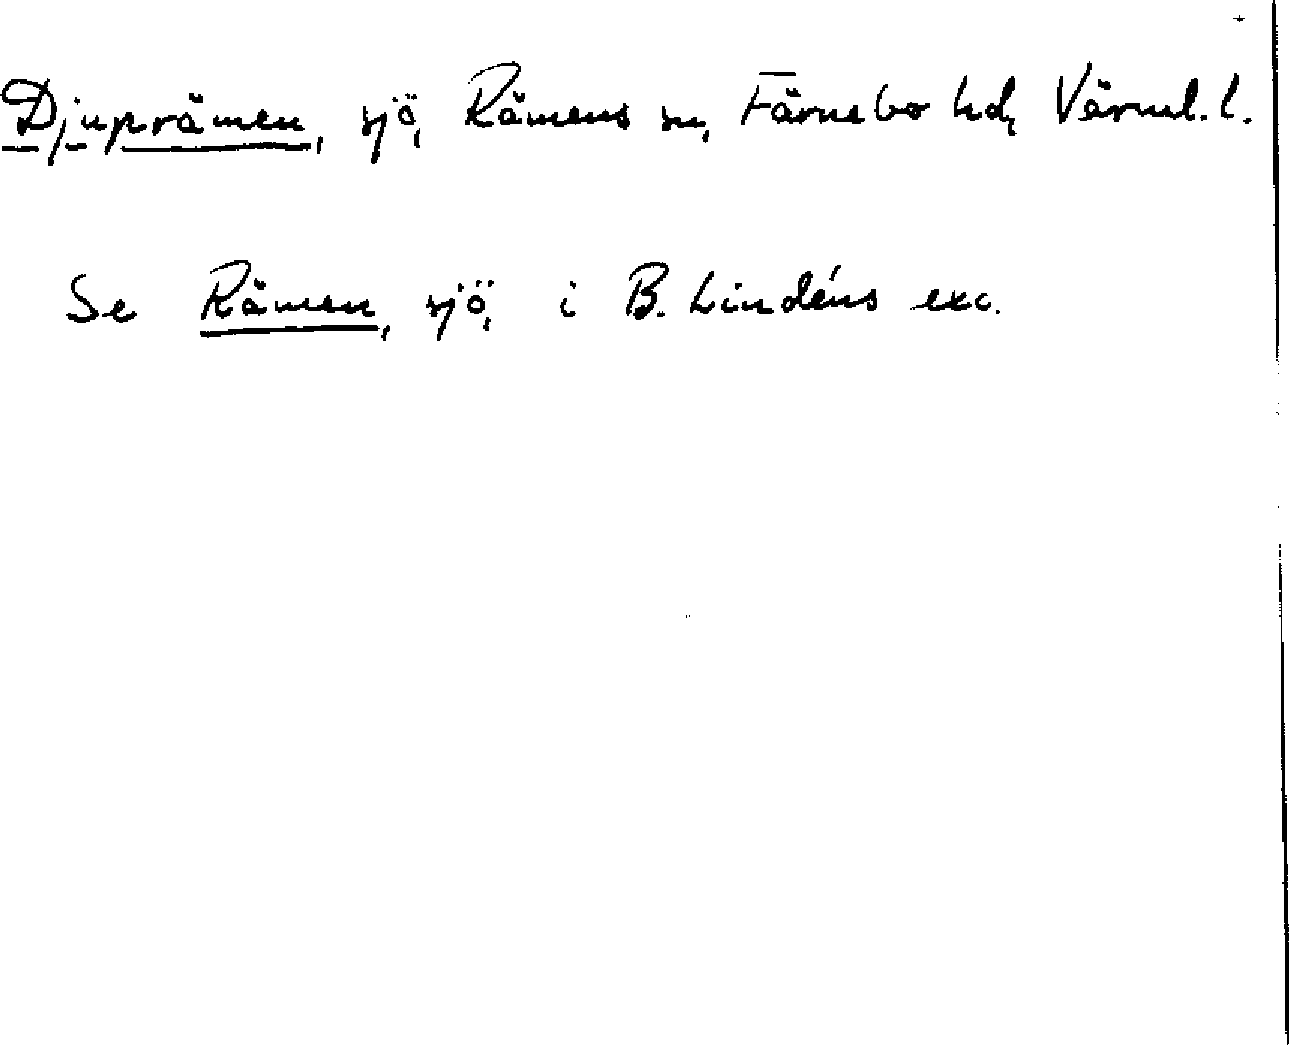 Djuprämen, sjö, Rämens sn, Färnebo hd, Värml. l.
Se Rämen, sjö, i B. Lindéns exc.